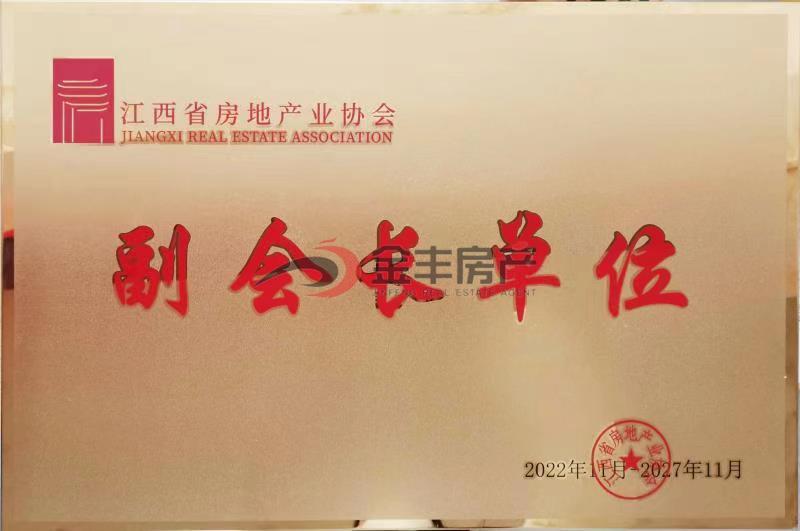 江西省房地产业协会
JIANGXI REAL ESTATE ASSOCIATION
副会长单位
金丰房产
JINFENG REAL ESTATE AGENT
2022年11月-2027年11月
江西省房地产业协会